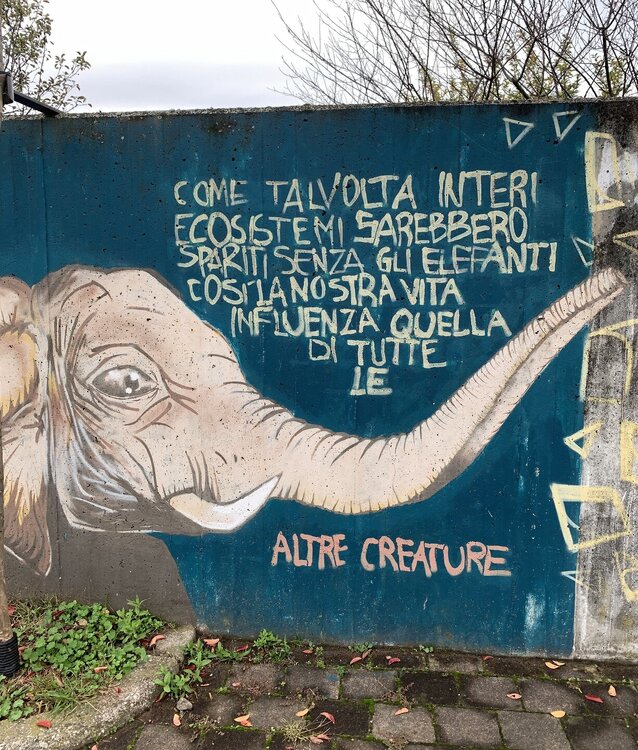 COME TALVOLTA INTERI
ECOSISTEMI SAREBBERO
SPARITI SENZA GLI ELEFANTI
COSI LA NOSTRA VITA
INFLUENZA QUELLA
DI TUTTE
LE
ALTRE CREATURE